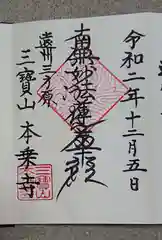 令和二年十二月五日
南無妙法蓮華経
遠州三方原
三寶山 本乗寺